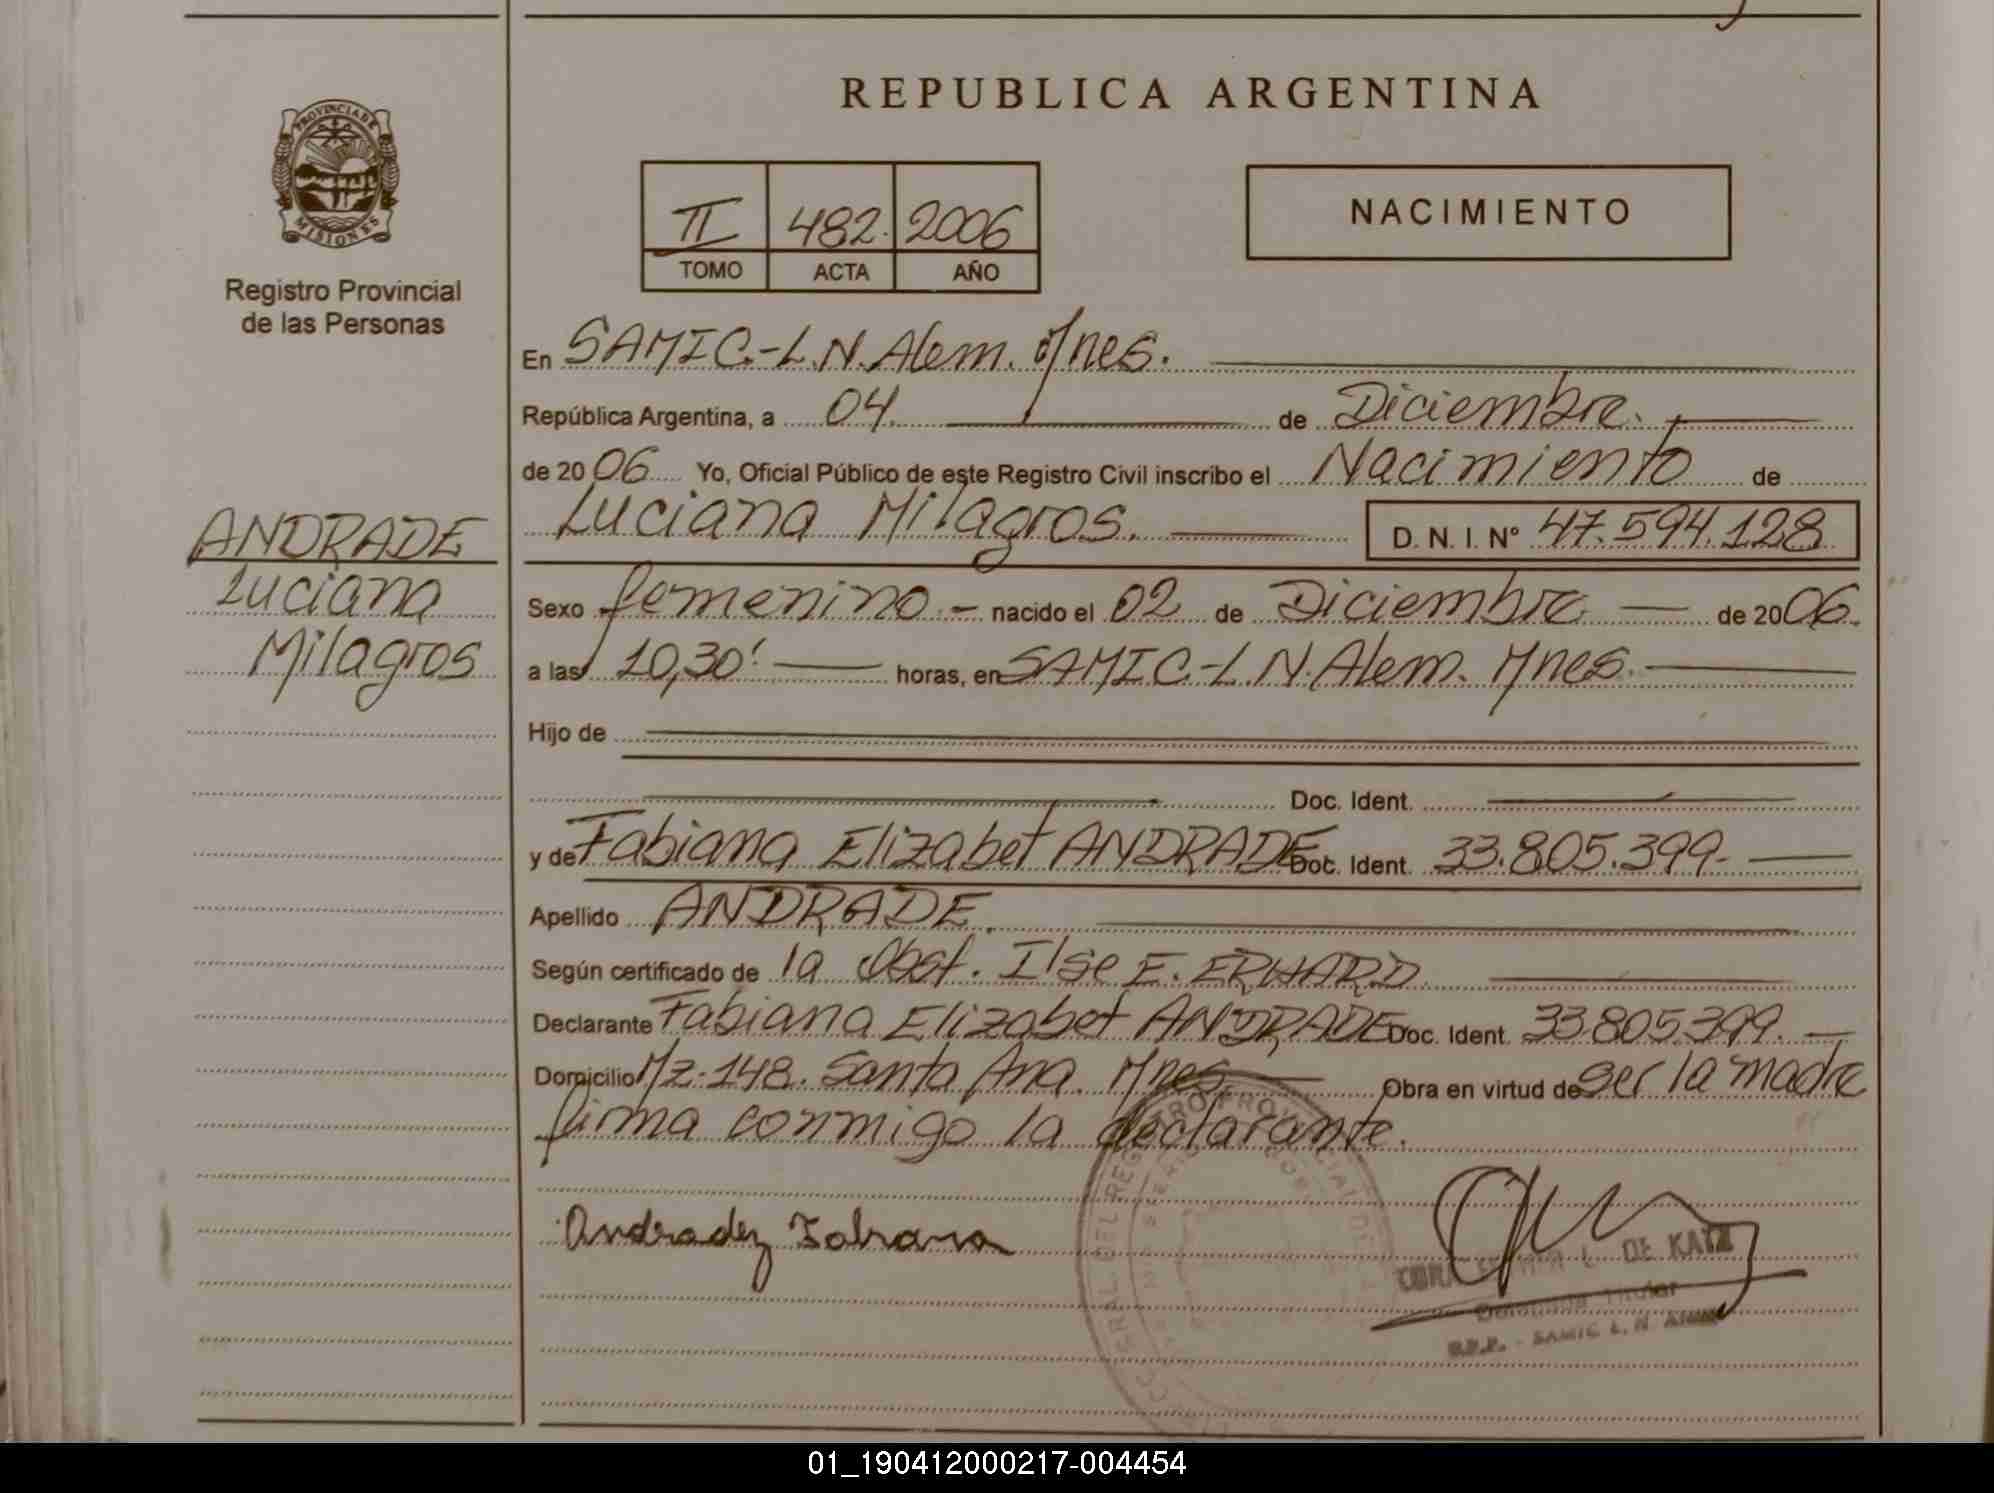 REPUBLICA ARGENTINA
PROVINCIA DE
MISIONES
Registro Provincial
de las Personas
II 482. 2006
TOMO ACTA AÑO
NACIMIENTO
En SAMIC.-L.N.Alem. Mnes.
República Argentina, a 04. de Diciembre.
de 2006 Yo, Oficial Público de este Registro Civil inscribo el Nacimiento de
Luciana Milagros. D. N. I. Nº 47.594.128
ANDRADE
Luciana
Milagros
Sexo femenino.- nacido el 02 de Diciembre. de 2006.
a las 10,30' horas, en SAMIC-L.N.Alem. Mnes.
Hijo de
Doc. Ident.
y de Fabiana Elizabet ANDRADE Doc. Ident. 33.805.399.
Apellido ANDRADE.
Según certificado de la Obst. Ilse E. ERHARD.
Declarante Fabiana Elizabet ANDRADE Doc. Ident. 33.805.399.
Domicilio Mz-148. Santa Ana. Mnes. Obra en virtud de ser la madre
firma conmigo la declarante.
DE KATZ
Titular
SAMIC L. N.
01_190412000217-004454